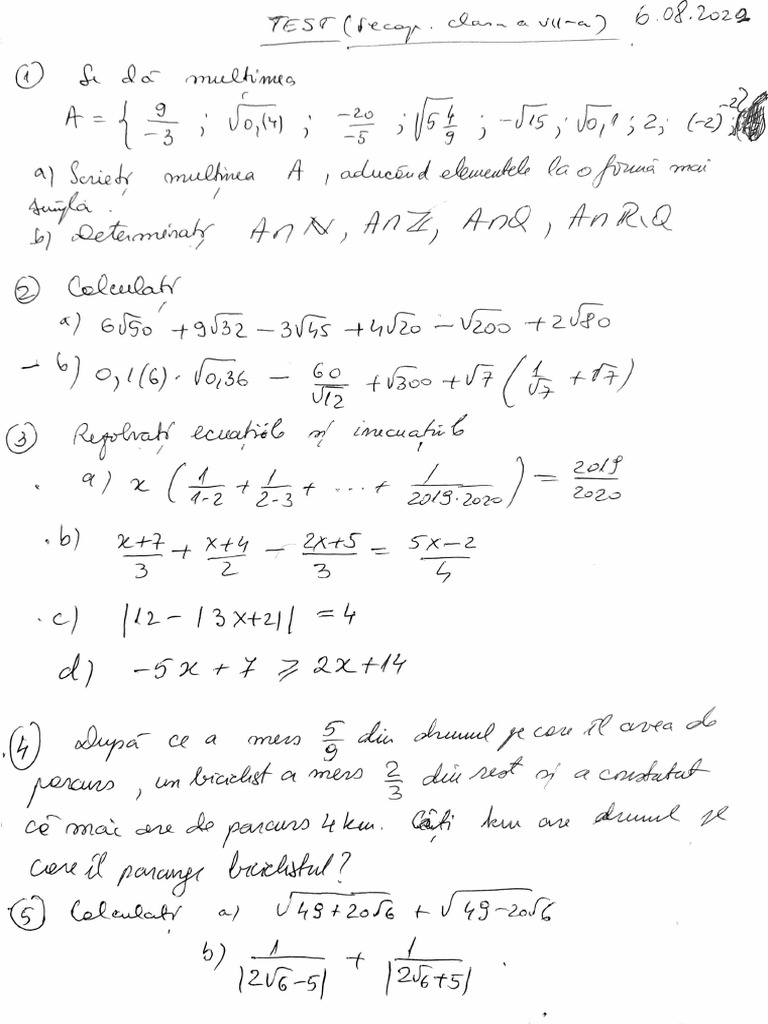 TEST (recap. clasa a VII-a) 6.08.2020
① Se dă mulțimea
A = { 9/-3 ; √0,(4) ; -20/-5 ; √5 4/9 ; -√15 ; √0,1 ; 2 ; (-2)⁻² }
a) Scrieți mulțimea A, aducând elementele la o formă mai
simplă.
b) Determinați A∩ℕ, A∩ℤ, A∩Q, A∩R\Q
② Calculați
a) 6√50 + 9√32 - 3√45 + 4√20 - √200 + 2√80
- b) 0,1(6) · √0,36 - 60/√12 + √300 + √7 (1/√7 + √7)
③ Rezolvați ecuațiile și inecuațiile
. a) x (1/1-2 + 1/2-3 + ... + 1/2019·2020) = 2019/2020
. b) x+7/3 + x+4/2 - 2x+5/3 = 5x-2/4
. c) |12 - |3x+2|| = 4
d) -5x + 7 ⩾ 2x+14
. ④ După ce a mers 5/9 din drumul pe care îl avea de
parcurs, un biciclist a mers 2/3 din rest și a constatat
că mai are de parcurs 4 km. Câți km are drumul pe
care îl parcurge biciclistul?
⑤ Calculați a) √49+20√6 + √49-20√6
b) 1/|2√6-5| + 1/|2√6+5| .